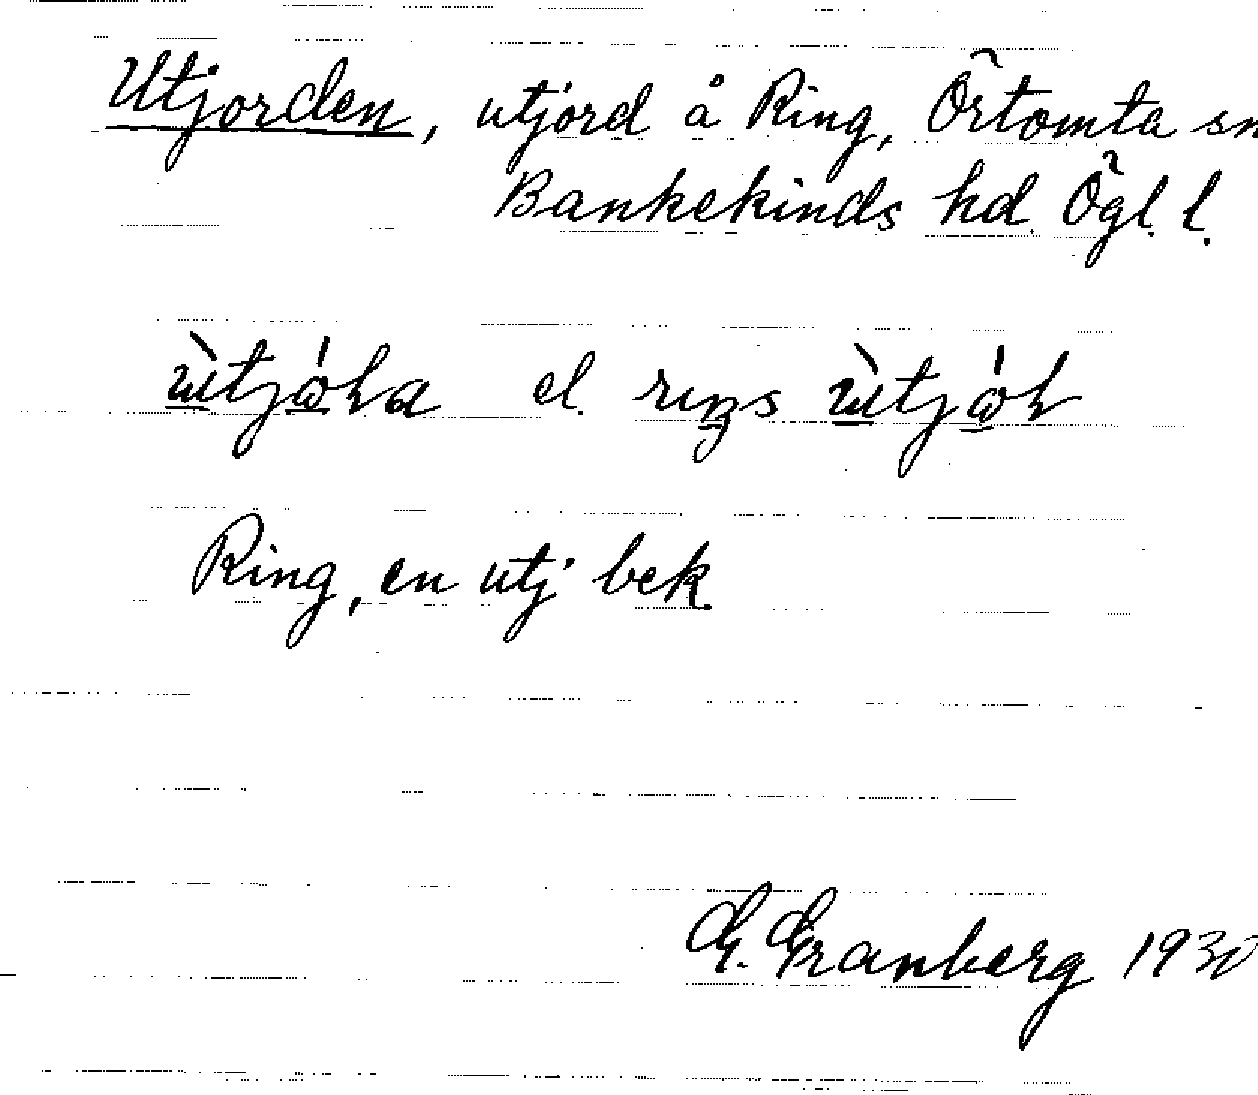 Utjorden, utjord å Ring, Örtomta sn
Bankekinds hd. Ögl. l.
el.
Ring, en utj. bek.
G. Granberg 1930